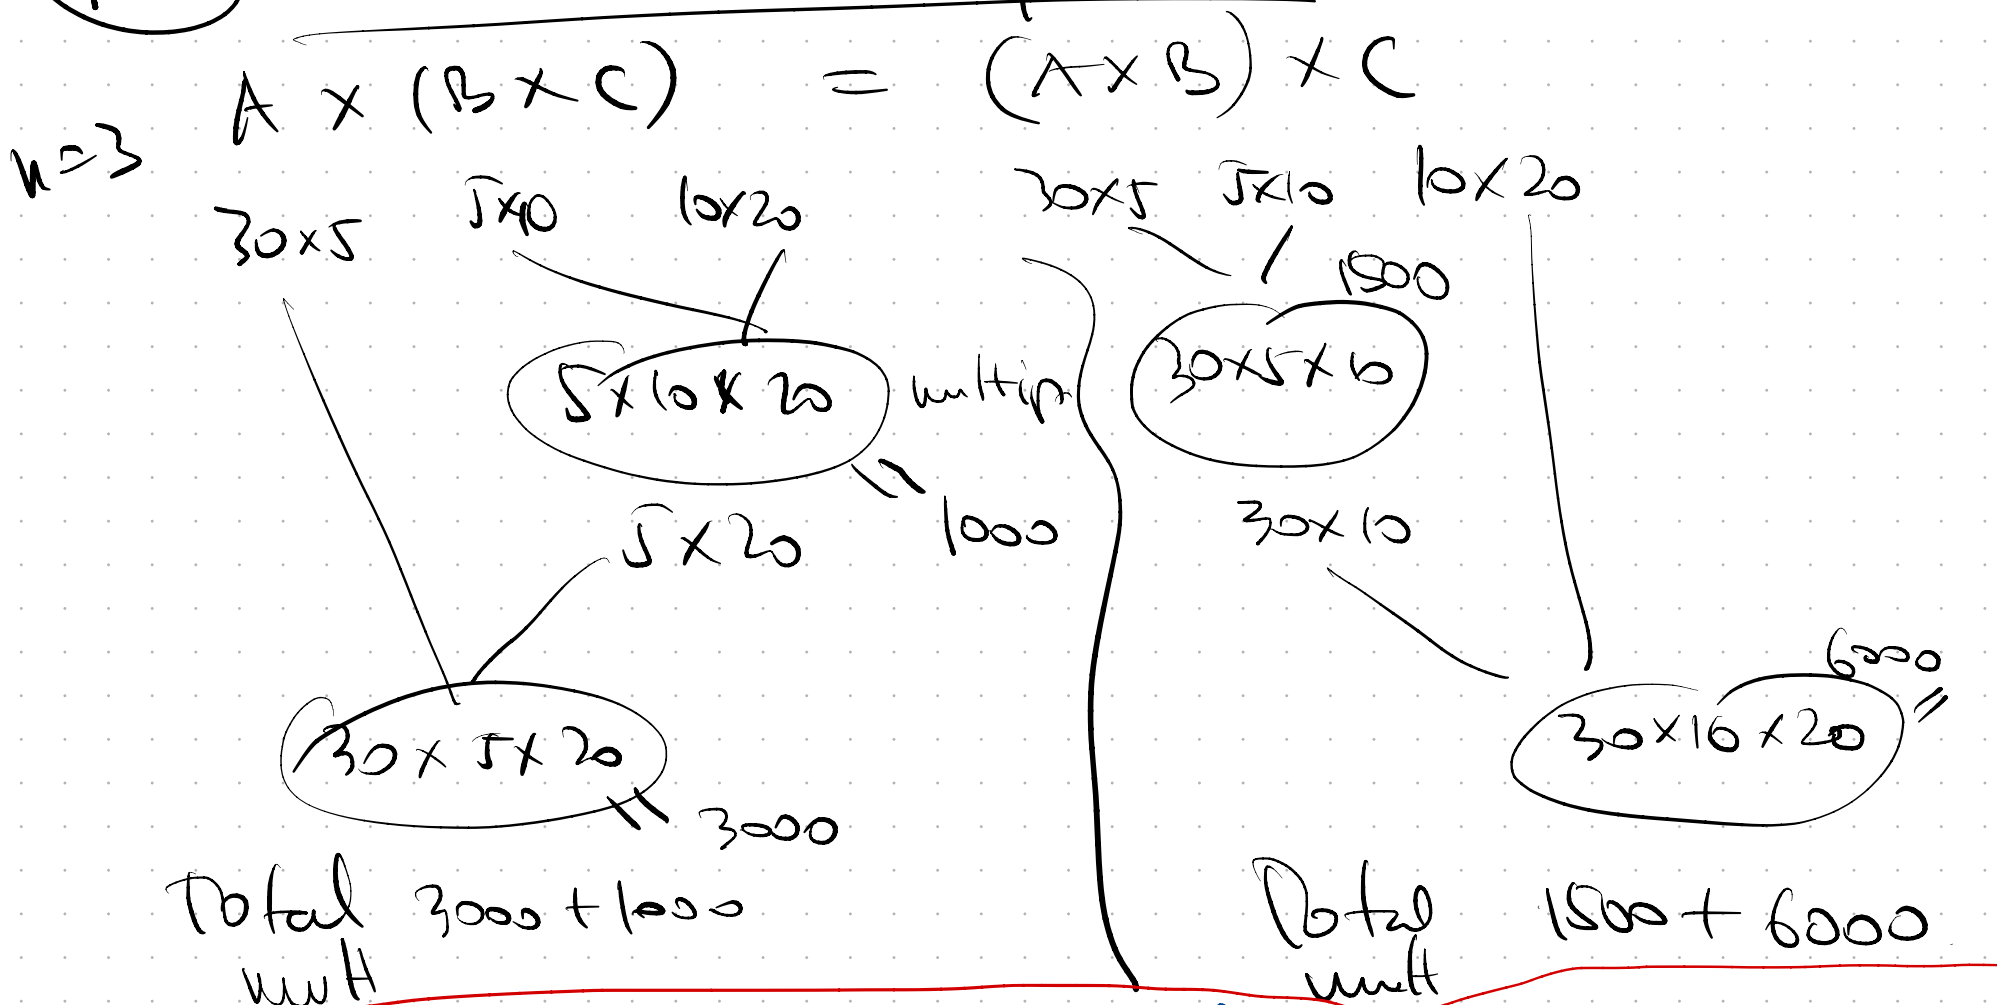 A × (B × C) = (A × B) × C
n=3
30×5 5×10 10×20
5×10×20 multip
1000
5×20
30×5×20
3000
Total 3000+1000
mult
30×5 5×10 10×20
1500
30×5×10
30×10
6000
30×10×20
Total 1500+6000
mult